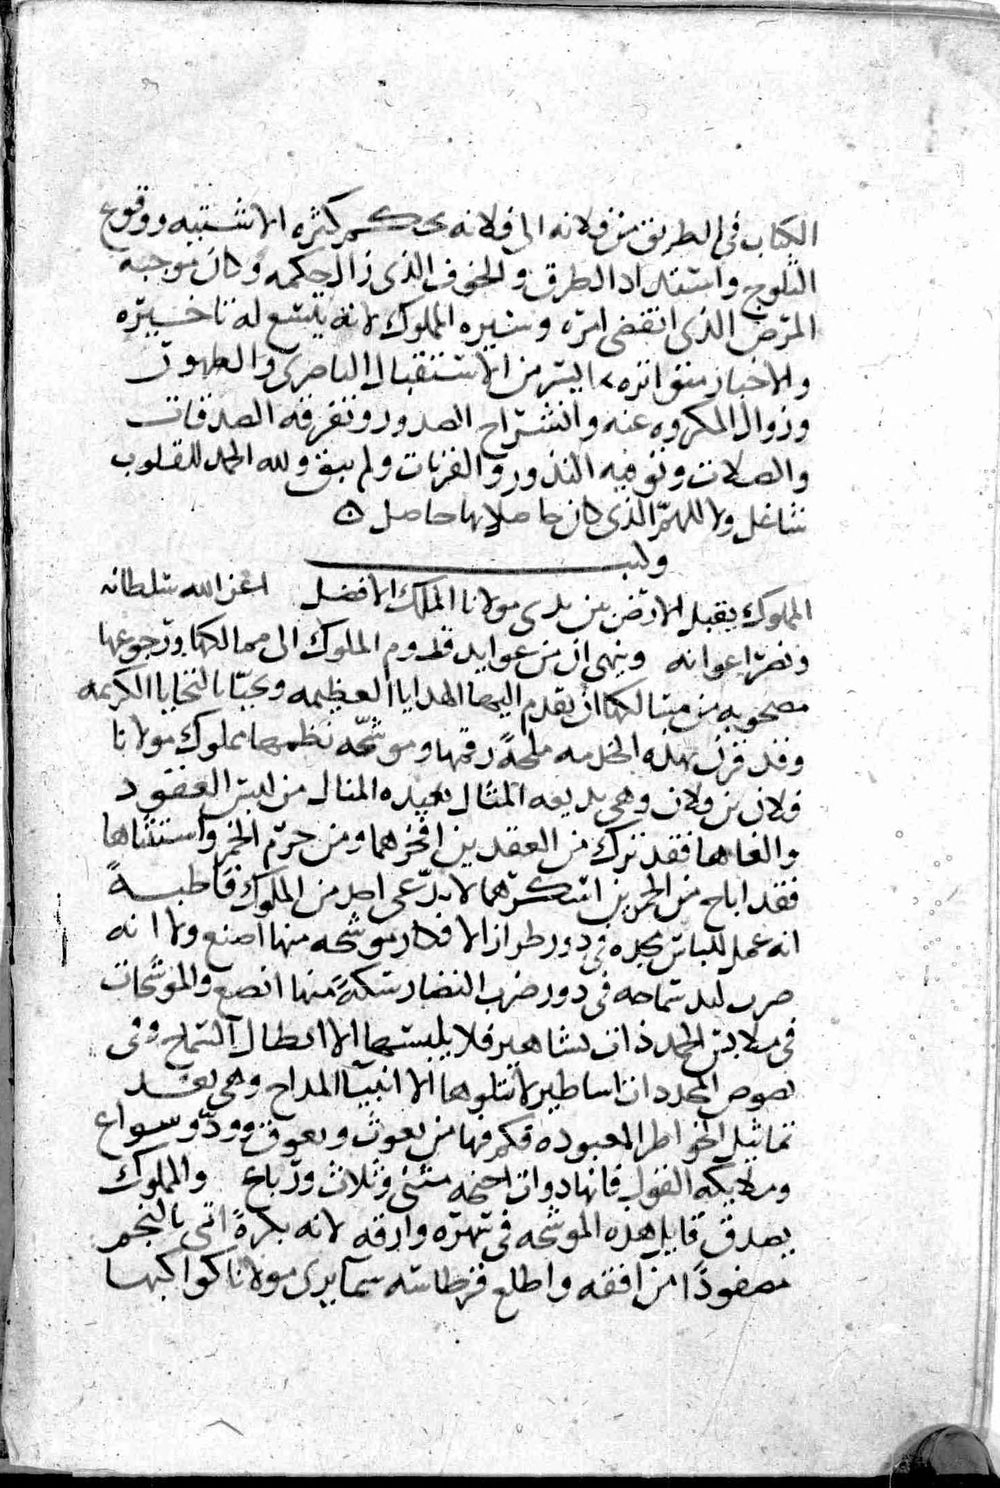 الكتاب في الطريق من فلانه الى فلانه بحكم كثره الاشتيه ووقوع
الثلوج وانسداد الطرق والخوف الذي زال حكمه وكان موجبه
المرض الذي انقضى امره وسيره المملوك لانه يتسع له تاخيره
والاخبار متواتره اليسر من الاستقبال الناصري والطهور
وزوال المكروه عنه وانشراح الصدور وتفرقه الصدقات
والصلات وتوفيه النذور والقربات ولم يبق ولله الحمد للقلوب
شاغل ولا للهم الذي كان حاصلا بها حاصل
وكتب
المملوك يقبل الارض بين يدي مولانا الملك الافضل اعز الله سلطانه
ونصر اعوانه وينهي ان من عوايد قدوم الملوك الى ممالكها ورجوعها
مصحوبه من مسالكها ان يقدم اليها الهدايا العظيمه وتحيا بالتحايا الكريمه
وقد قرن بهذه الخدمه ملحة رقمها وموشحه نظمها مملوك مولانا
فلان بن فلان وهي بديعه المثال بعيده المنال من لبس العقود
والغاها فقد ترك من العقدين افخرهما ومن حرم الخمر واستثناها
فقد اباح من الخمرين اسكرهما لا يدعي احد من الملوك قاطبة
انه عمل للباس مجده في دور طراز الافكار موشحه منها اصنع ولا انه
ضرب ليد سماحه في دور ضرب النضار سكة منها انصع والموشحات
في ملابس الحمد ذات مشاهير فلا يلبسها الا ابطال السماح وفي
نصوص المجد ذات اساطير لا يتلوها الا انبيا المداح وهي بعد
تماثيل الخواطر المعبوده فكم فيها من يغوث ويعوق وود وسواع
وملايكه القول فانها ذوات اجنحه مثنى وثلاث ورباع والمملوك
يصدق قايل هذه الموشحه في تهزه وارقه لانه بكرة اتى بالنجم
مصفودا من افقه واطلع قرطاسه سما يرى مولانا كواكبها